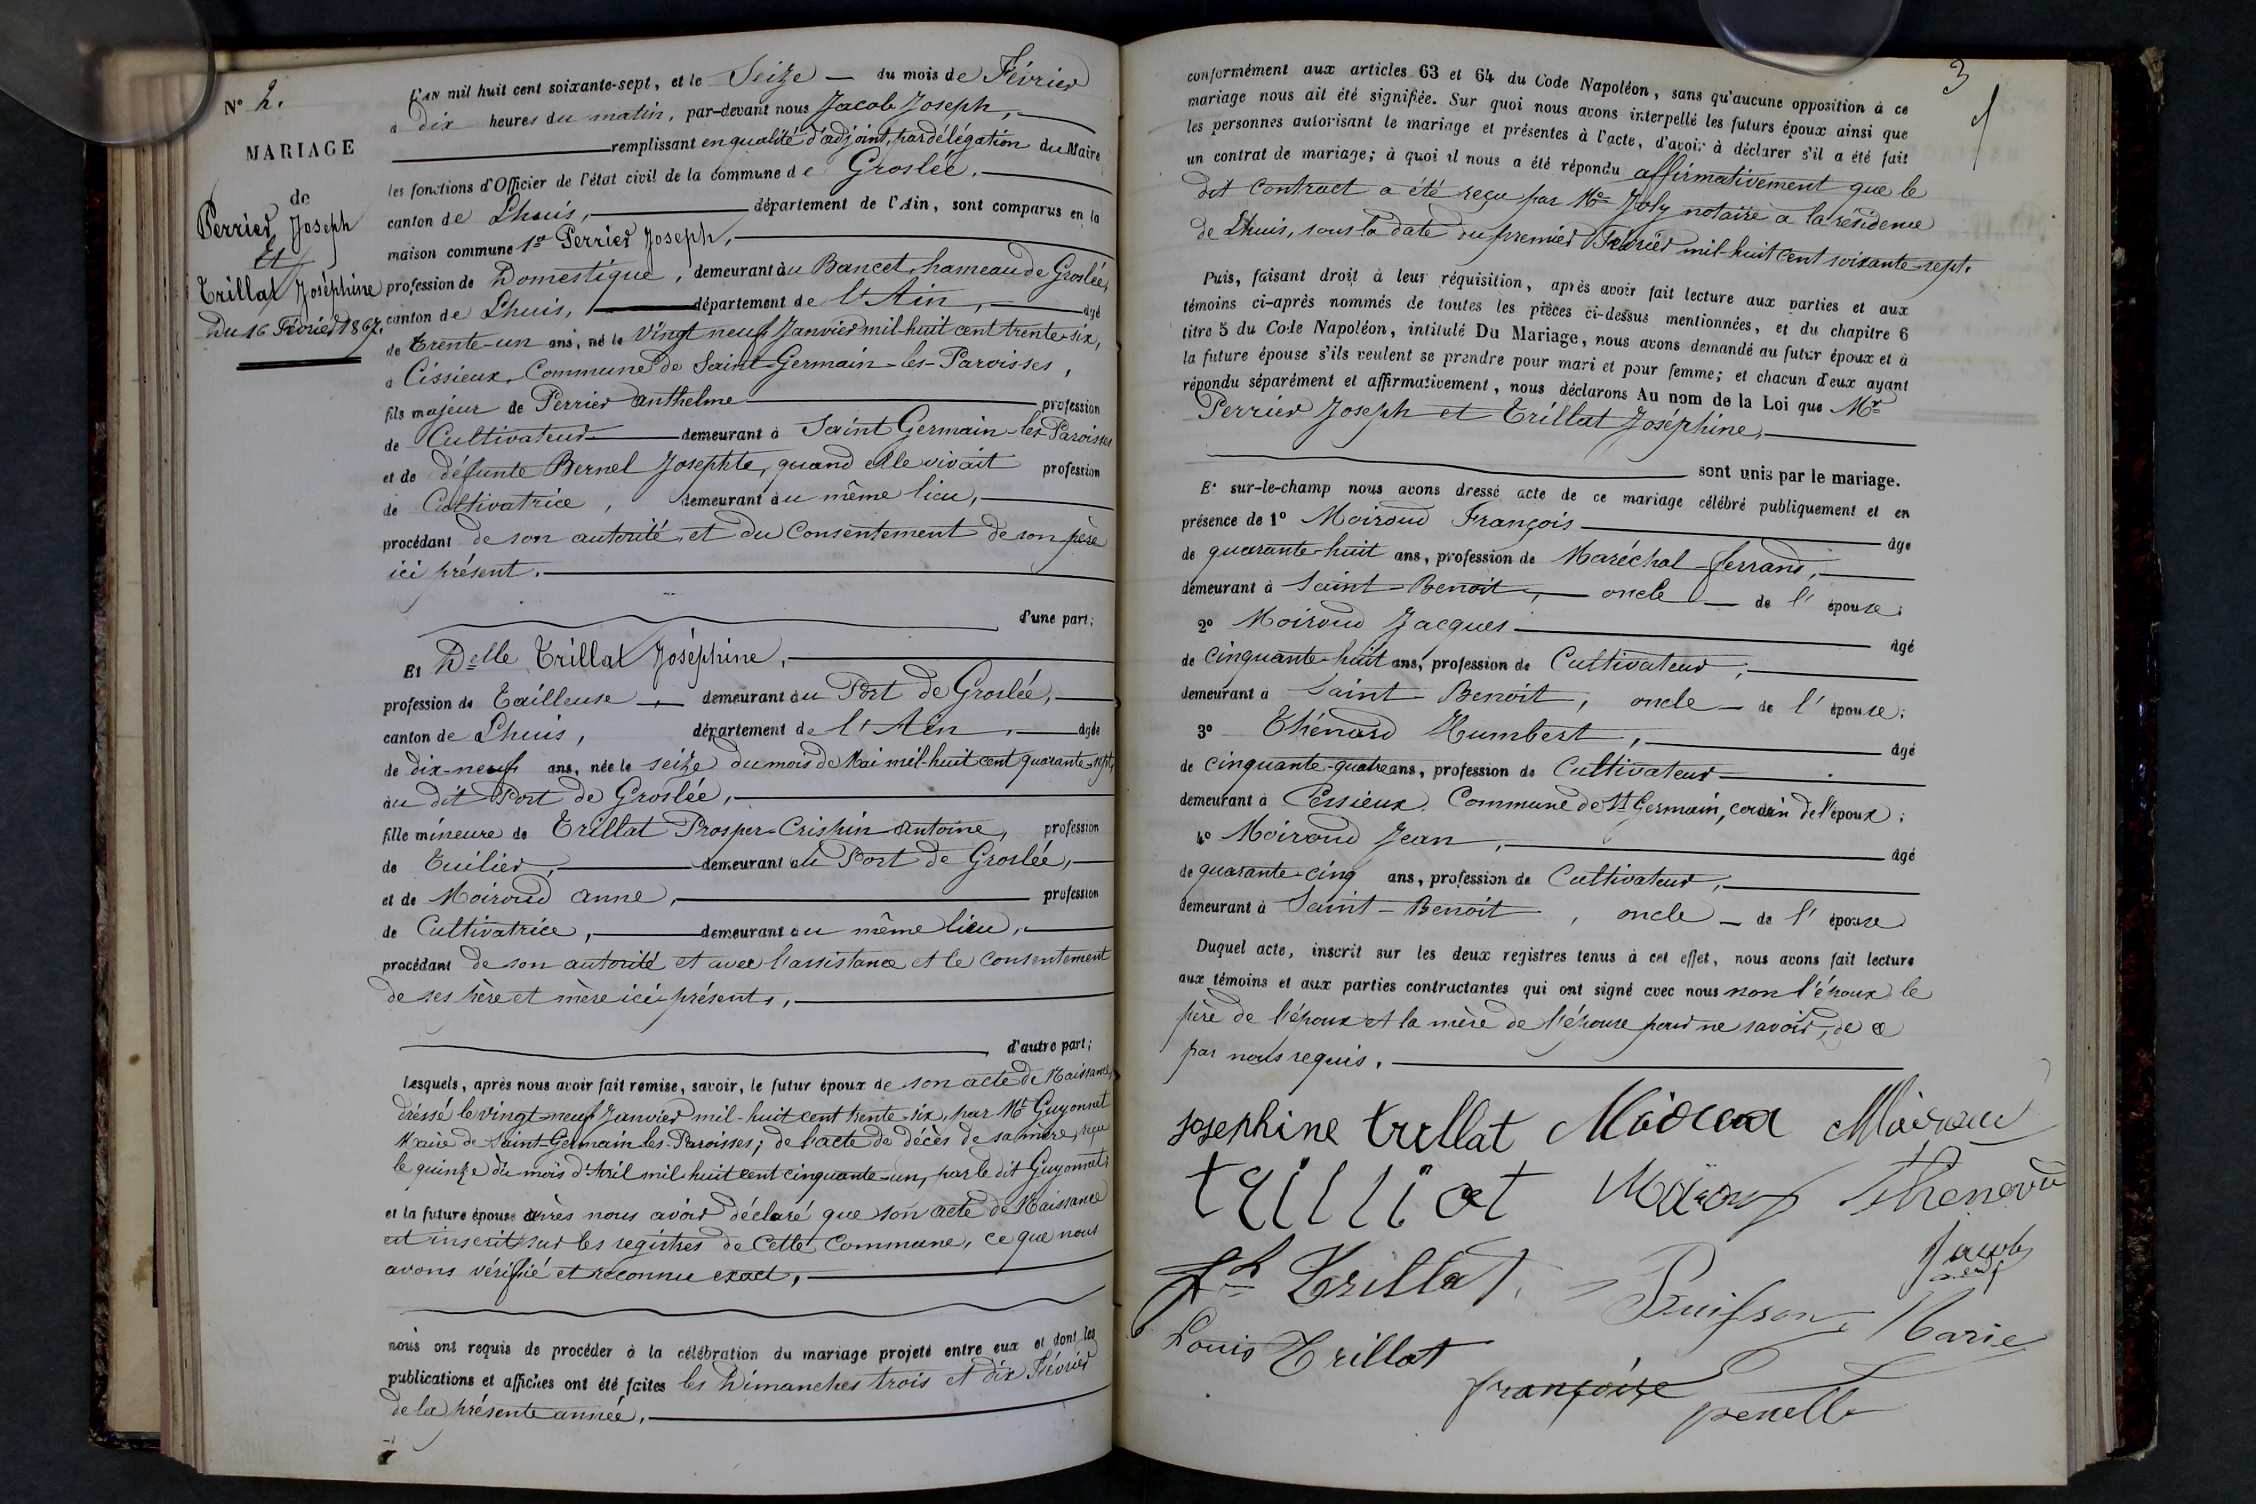 N° 2.
MARIAGE
de
Perrier Joseph
Et
Trillat Joséphine
du 16 Février 1867.
L'AN mil huit cent soixante-sept, et le Seize — du mois de Février
à dix heures du matin, par-devant nous Jacob Joseph,
remplissant en qualité d'adjoint, par délégation du Maire
les fonctions d'Officier de l'état civil de la commune de Groslée.
canton de Lhuis, département de l'Ain, sont comparus en la
maison commune 1º Perrier Joseph,
profession de Domestique, demeurant au Bancet, hameau de Groslée,
canton de Lhuis, département de l'Ain, âgé
de Trente-un ans, né le vingt neuf Janvier mil-huit cent trente-six,
à Cissieux, Commune de Saint-Germain-les-Paroisses,
fils majeur de Perrier Anthelme profession
de Cultivateur demeurant à Saint Germain-les-Paroisses
et de défunte Bernel Josephte, quand elle vivait profession
de Cultivatrice, demeurant au même lieu,
procédant de son autorité et du consentement de son père
ici présent.
d'une part;
Et Delle Trillat Joséphine,
profession de Tailleuse, demeurant au Port de Groslée,
canton de Lhuis, département de l'Ain, âgée
de dix-neuf ans, née le seize du mois de Mai mil-huit cent quarante-sept,
au dit Port de Groslée,
fille mineure de Trillat Prosper-Crispin Antoine, profession
de Tuilier, demeurant au Port de Groslée,
et de Moiroud Anne, profession
de Cultivatrice, demeurant au même lieu,
procédant de son autorité et avec l'assistance et le consentement
de ses père et mère ici présents,
d'autre part;
Lesquels, après nous avoir fait remise, savoir, le futur époux de son acte de Naissance,
dressé le vingt neuf Janvier mil-huit cent trente-six, par Mr Guyonnet
Maire de Saint Germain les Paroisses; de l'acte de décès de sa mère, reçu
le quinze du mois d'Avril mil huit cent cinquante-un, par le dit Guyonnet;
et la future épouse après nous avoir déclaré que son acte de Naissance
est inscrit sur les registres de cette Commune, ce que nous
avons vérifié et reconnu exact,
nous ont requis de procéder à la célébration du mariage projeté entre eux et dont les
publications et affiches ont été faites les Dimanches trois et dix Février
de la présente année.
3
conformément aux articles 63 et 64 du Code Napoléon, sans qu'aucune opposition à ce
mariage nous ait été signifiée. Sur quoi nous avons interpellé les futurs époux ainsi que
les personnes autorisant le mariage et présentes à l'acte, d'avoir à déclarer s'il a été fait
un contrat de mariage; à quoi il nous a été répondu affirmativement que le
dit contract a été reçu par Me Joly notaire à la résidence
de Lhuis, sous la date du premier Février mil-huit cent soixante-sept.
Puis, faisant droit à leur réquisition, après avoir fait lecture aux parties et aux
témoins ci-après nommés de toutes les pièces ci-dessus mentionnées, et du chapitre 6
titre 5 du Code Napoléon, intitulé Du Mariage, nous avons demandé au futur époux et à
la future épouse s'ils veulent se prendre pour mari et pour femme; et chacun d'eux ayant
répondu séparément et affirmativement, nous déclarons Au nom de la Loi que Mr
Perrier Joseph et Trillat Joséphine,
sont unis par le mariage.
Et sur-le-champ nous avons dressé acte de ce mariage célébré publiquement et en
présence de 1º Moiroud François âgé
de quarante-huit ans, profession de Maréchal-ferrand,
demeurant à Saint-Benoit, oncle de l'épouse;
2º Moiroud Jacques âgé
de cinquante-huit ans, profession de Cultivateur,
demeurant à Saint-Benoit, oncle — de l'épouse;
3º Thénard Humbert, âgé
de cinquante-quatre ans, profession de Cultivateur
demeurant à Cessieux, Commune de St Germain, cousin de l'époux;
4º Moiroud Jean, âgé
de quarante-cinq ans, profession de Cultivateur,
demeurant à Saint-Benoit, oncle — de l'épouse
Duquel acte, inscrit sur les deux registres tenus à cet effet, nous avons fait lecture
aux témoins et aux parties contractantes qui ont signé avec nous non l'époux, le
père de l'époux et la mère de l'épouse pour ne savoir, de ce
par nous requis.
Josephine trillat
trilliat
Trillat
Thenard
Jacob
Louis Trillat
Marie
françoise
penelle